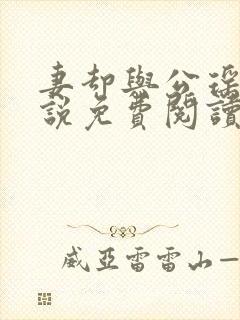 妻却與公瑶
說免費閱讀
威亞雷雷山—